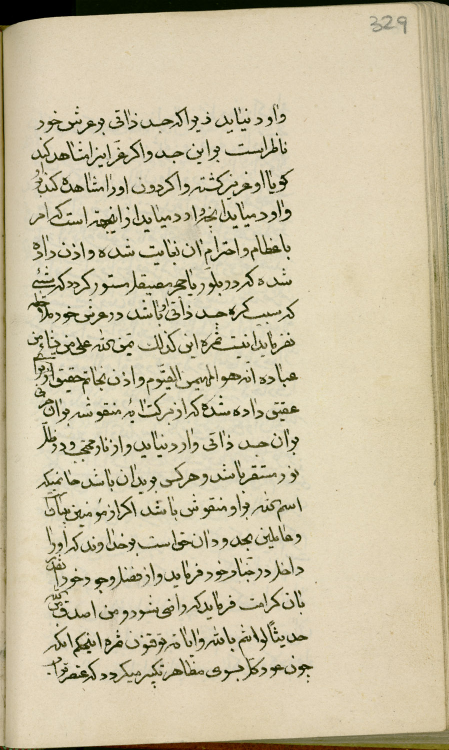 329
وارد نیاید زیرا که جسد ذاتی بر عرش خود
ناظر است بر این جسد و اگر عز او را مشاهده کند
کویا او عزیز کشته و اکر دون او را مشاهده کند بر او
وارد میاید آنچه وارد میاید از این جهة است که امر
باعظام و احترام ان بغایت شده و اذن داده
شده که در بلور یا حجر مصیقل مستور کردد که شیئ
که سبب کره جسد ذاتی او باشد در عرش خود ملاحظه
نفرماید اینست ثمره این کذلک یمن الله علی من یشاء من
عباده انه هو المهیمن القیوم و اذن بخاتم حقیق او
عقیق داده شده که از برکت ایه منقوشه بر ان حزنی
بر ان جسد ذاتی وارد نیاید و از نار محتجب و در ظل
نور مستقر باشد و هر کس بر یدان باشد خاتمیکه
اسم الله بر او منقوش باشد اکر از مؤمنین بها
و عاملین بحدود ان خواست بر خداوند که او را
داخل در جنان خود فرماید و از فضل و جود خود
بان کرامت فرماید که راضی شود و من اصدق من الله
حدیثا لو انتم بالله و ایاته توقنون ثمره اینحکم انکه
چون عود کل بسوی مظاهر تکبیر میکردد که عنصر تراب